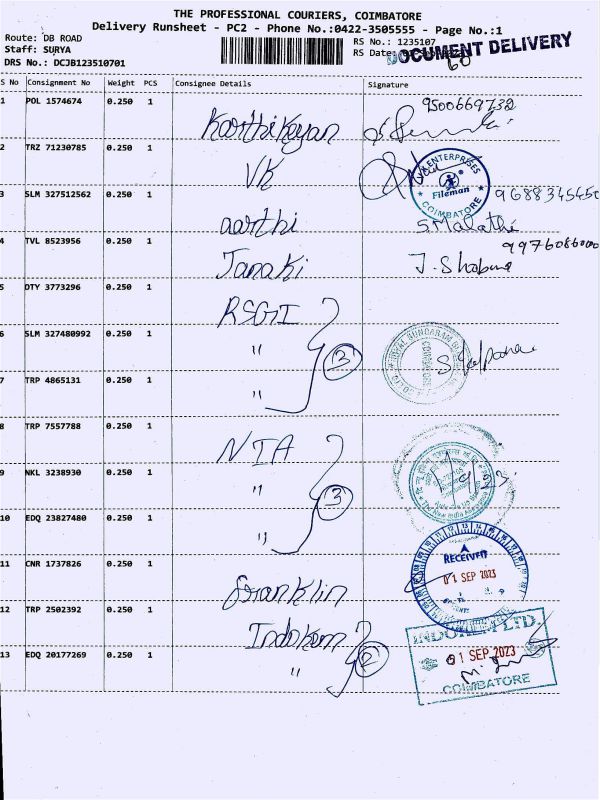 THE PROFESSIONAL COURIERS, COIMBATORE
Delivery Runsheet - PC2 - Phone No.:0422-3505555 - Page No.:1
Route: DB ROAD
Staff: SURYA
DRS No.: DCJB123510701
RS No.: 1235107
RS Date:
DOCUMENT DELIVERY
60
S No Consignment No Weight PCS Consignee Details Signature
1 POL 1574674 0.250 1 Karthikeyan 9500669732
2 TRZ 71230785 0.250 1 VK
ENTERPRISES
Fileman
COIMBATORE
3 SLM 327512562 0.250 1 aarthi 9688345450
S. Malathi
4 TVL 8523956 0.250 1 Janaki 9976086000
J. Shobana
5 DTY 3773296 0.250 1 RSGI
6 SLM 327480992 0.250 1 " 3
7 TRP 4865131 0.250 1 "
8 TRP 7557788 0.250 1 NIA
9 NKL 3238930 0.250 1 " 3
The New India Assurance
10 EDQ 23827480 0.250 1 "
11 CNR 1737826 0.250 1 Franklin
RECEIVED
01 SEP 2023
12 TRP 2502392 0.250 1 Indokem
INDOKEM LTD.
13 EDQ 20177269 0.250 1 " 2
01 SEP 2023
COIMBATORE